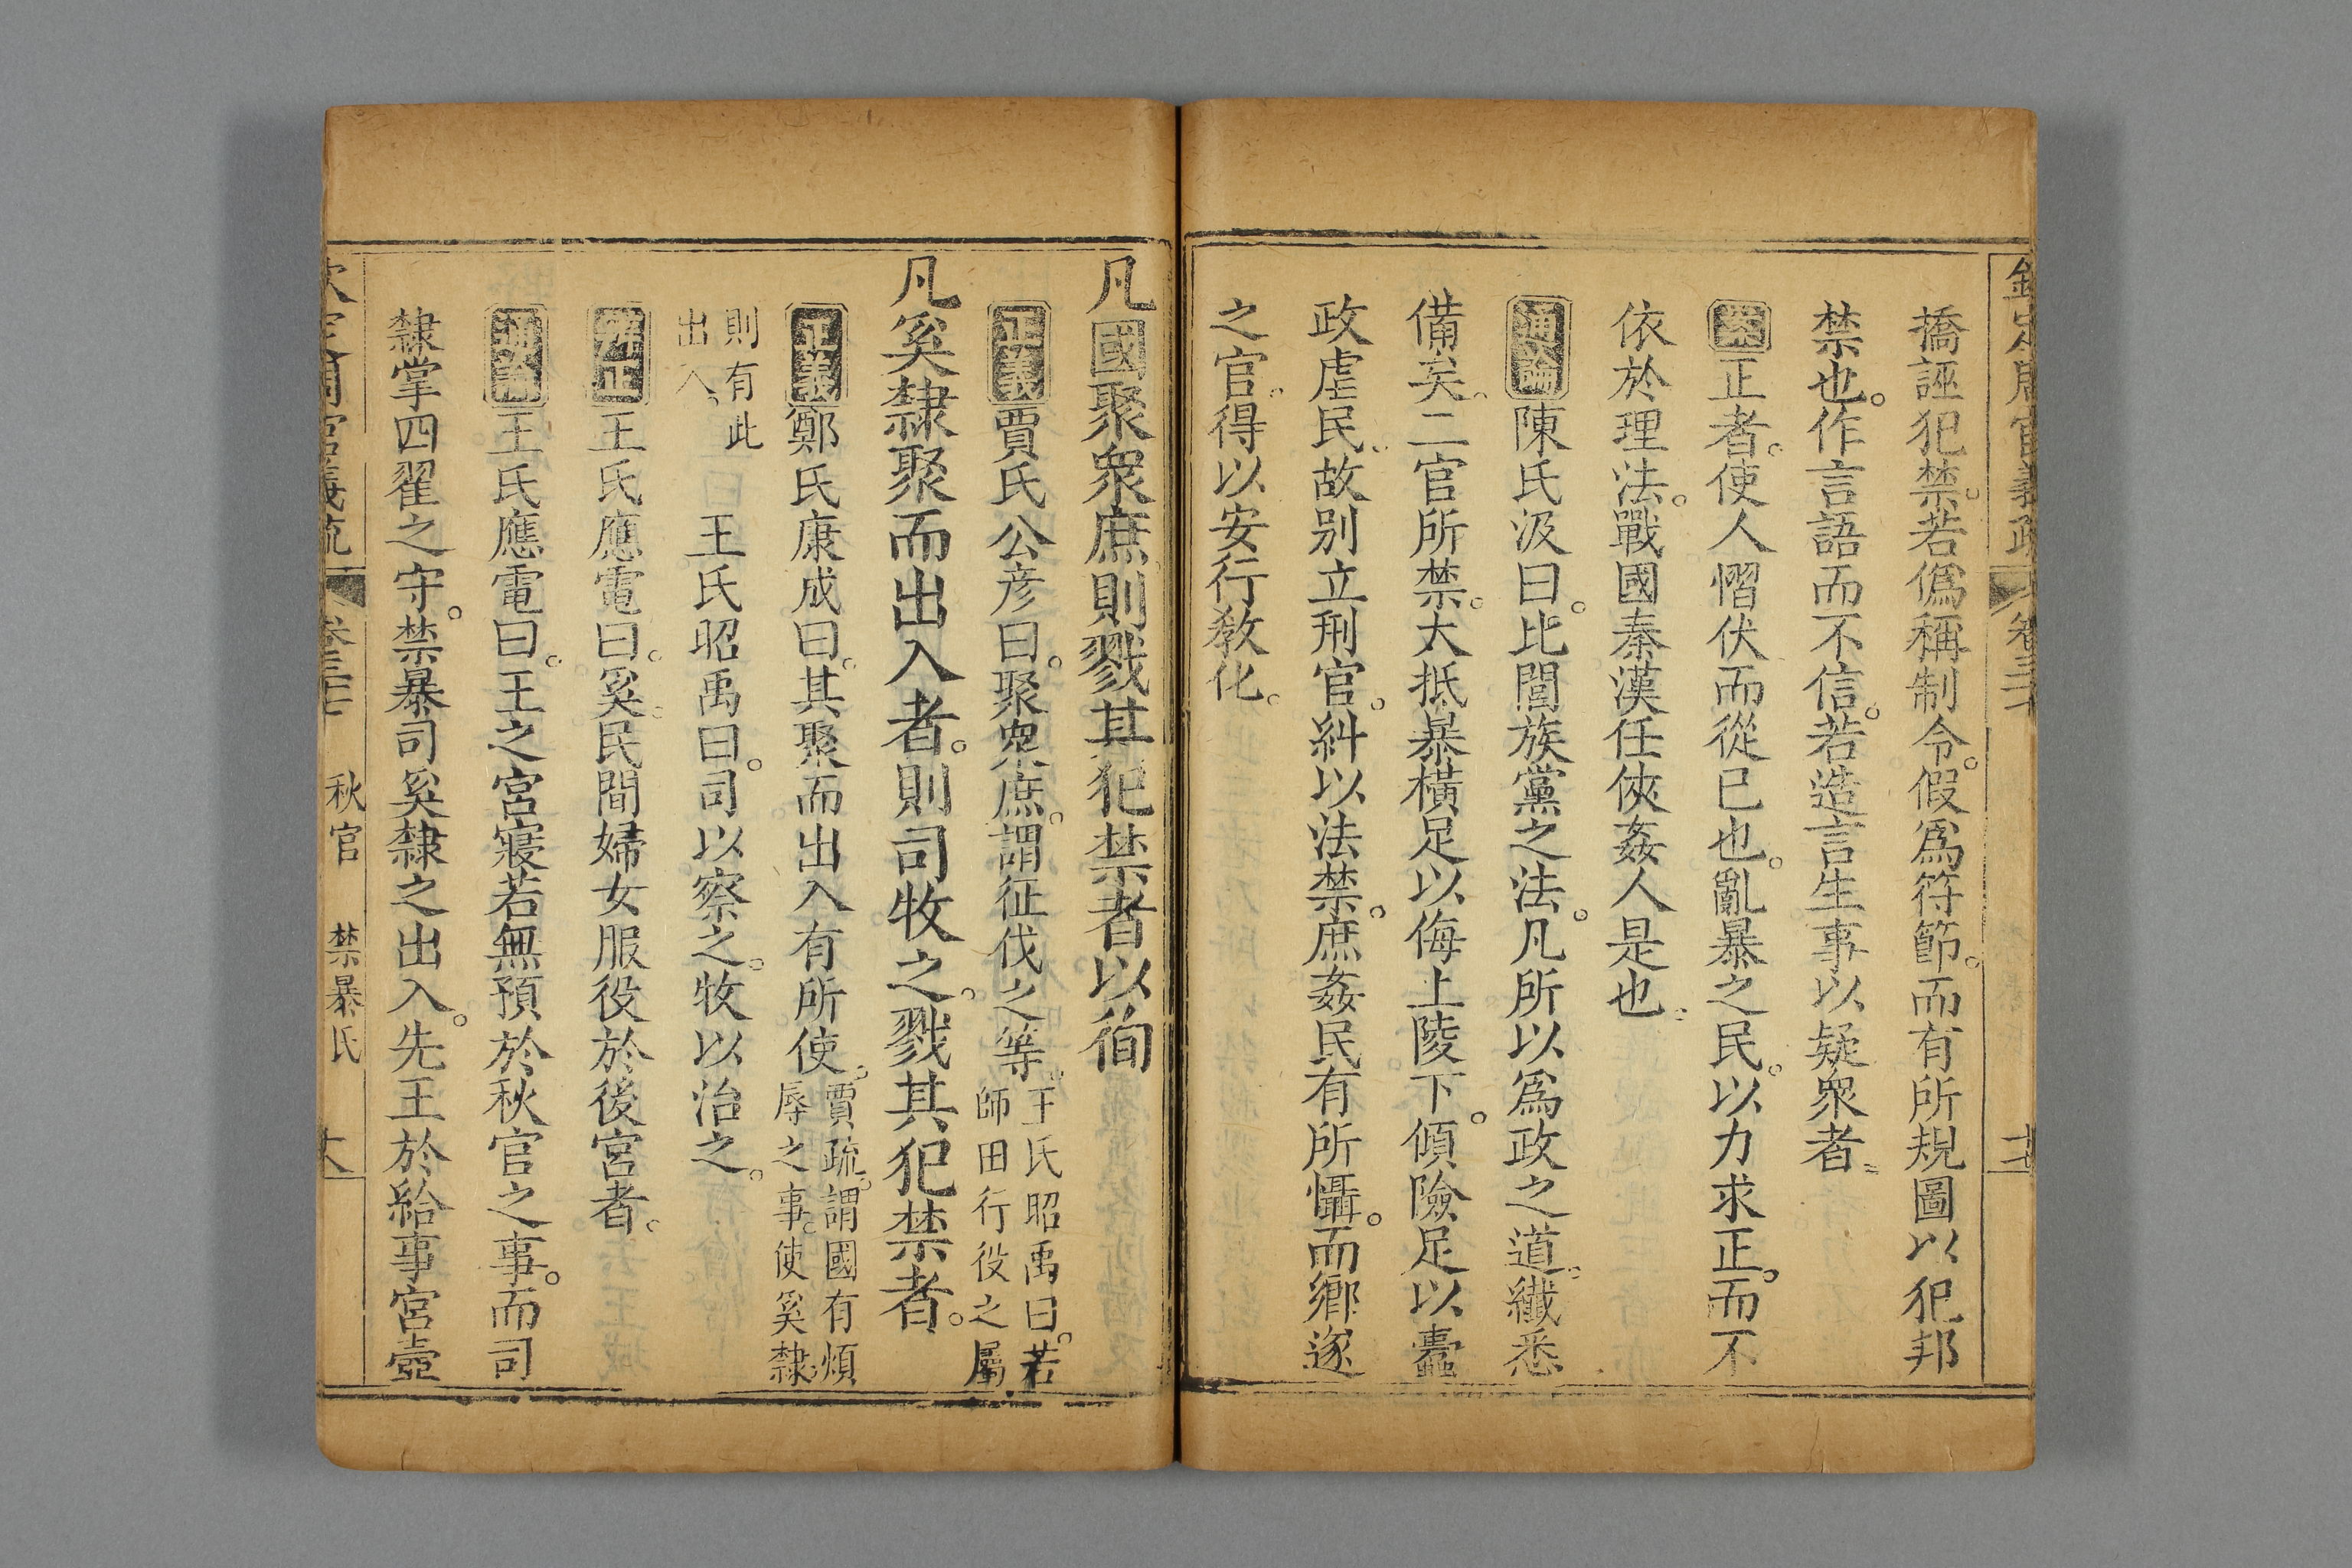 欽定周官義疏 卷三十七
撟誣犯禁若僞稱制令。假爲符節。而有所規圖以犯邦
禁也。作言語而不信。若造言生事以疑衆者。
案正者。使人慴伏而從已也。亂暴之民。以力求正。而不
依於理法。戰國秦漢任俠姦人是也。
通論陳氏汲曰。比閭族黨之法。凡所以爲政之道。纖悉
備矣。二官所禁。大抵暴橫足以侮上陵下。傾險足以蠹
政虐民。故別立刑官。糾以法禁。庶姦民有所懾。而鄉遂
之官。得以安行敎化。
凡國聚衆庶則戮其犯禁者以徇
正義賈氏公彦曰。聚衆庶。謂征伐之等。王氏昭禹曰。若師田行役之屬
凡奚隸聚而出入者。則司牧之。戮其犯禁者。
正義鄭氏康成曰。其聚而出入有所使。賈疏。謂國有煩辱之事。使奚隸。
則有此出入。王氏昭禹曰。司以察之。牧以治之。
辨正王氏應電曰。奚民間婦女服役於後宮者。
通論王氏應電曰。王之宮寢若無預於秋官之事。而司
隸掌四翟之守。禁暴司奚隸之出入。先王於給事宮壼
欽定周官義疏 卷三十七 秋官 禁暴氏